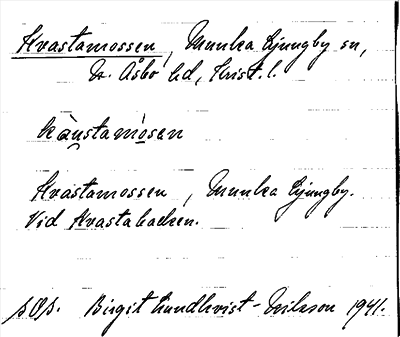 Kvastamossen, Munka Ljungby sn,
N. Åsbo hd, Krist. l.
kàustamòsen
Kvastamossen, Munka Ljungby.
Vid Kvastabacken.
Birgit Lundkvist-Nilsson 1941.